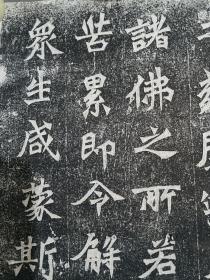 諸佛之所若
苦累即令解
衆生咸蒙斯